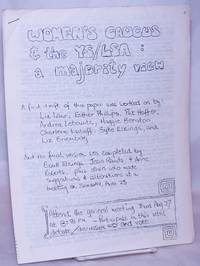 WOMEN'S CAUCUS
& the YS/LSA :
a majority view
A first draft of this paper was worked on by
Liz Law, Esther Phillips, Pat Hoffer,
Andrea Lebowitz, Maggie Benston
Charlene
and
Liz Briemberg
And the final version was completed by
Jean Rands & Anne
Roberts, plus others who made
suggestions & alterations at a
meeting on Aug 25
Attend the general meeting Thurs Aug 27
at 8:00 PM - Participate in this vital
debate / discussion and vote